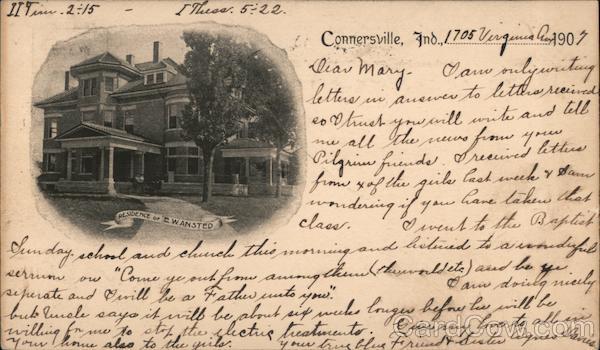 II Tim. 2:15 - I Thess. 5-22.
Connersville, Ind., 1705 Virginia Av 1907
Dear Mary- I am only writing
letters in answer to letters received
so I trust you will write and tell
me all the news from your
Pilgrim friends. I received letters
from of the girls last week & I am
wondering if you have taken that
class. I went to the Baptist
RESIDENCE OF E. WANSTED
Sunday school and church this morning and listened to a wonderful
sermon on "Come ye out from among them (the world etc) and be ye
seperate and I will be a Father unto you". I am doing nicely
but Uncle says it will be about six weeks longer before he will be
willing for me to stop the electric treatments. Give my love to all in
your home also to the girls. Your true blue Friend & Sister Agnes
CardCow.com